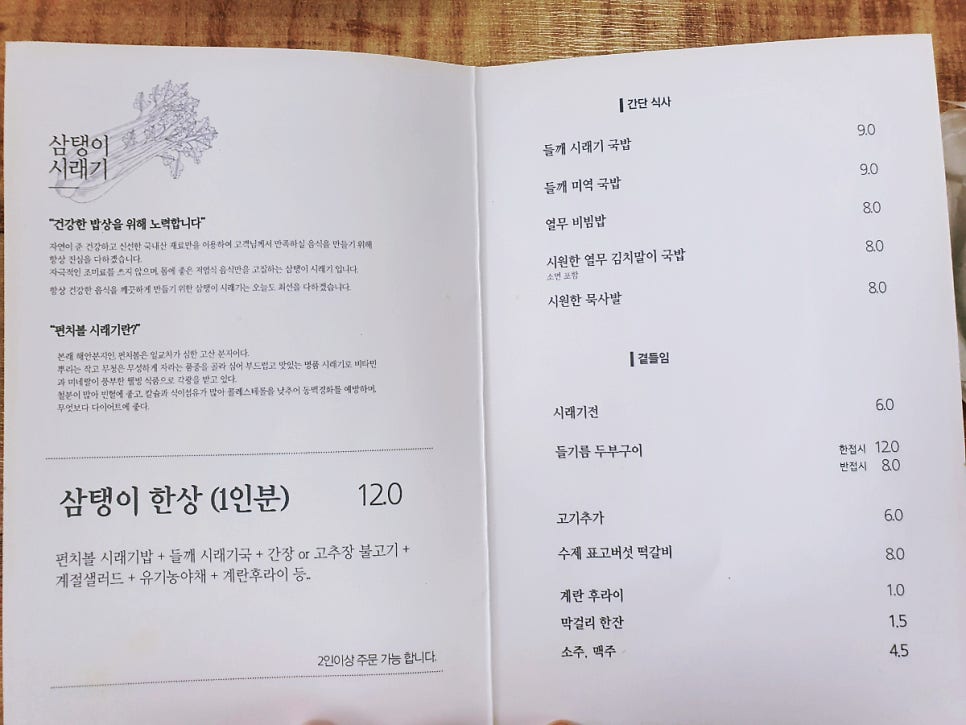 삼탱이
시래기
"건강한 밥상을 위해 노력합니다"
자연이 준 건강하고 신선한 국내산 재료만을 이용하여 고객님께서 만족하실 음식을 만들기 위해
항상 진심을 다하겠습니다.
자극적인 조미료를 쓰지 않으며, 몸에 좋은 저염식 음식만을 고집하는 삼탱이 시래기 입니다.
항상 건강한 음식을 깨끗하게 만들기 위한 삼탱이 시래기는 오늘도 최선을 다하겠습니다.
"펀치볼 시래기란?"
본래 해안분지인, 펀치볼은 일교차가 심한 고산 분지이다.
뿌리는 작고 무청은 무성하게 자라는 품종을 골라 심어 부드럽고 맛있는 명품 시래기로 비타민
과 미네랄이 풍부한 웰빙 식품으로 각광을 받고 있다.
철분이 많아 빈혈에 좋고, 칼슘과 식이섬유가 많아 콜레스테롤을 낮추어 동맥경화를 예방하며,
무엇보다 다이어트에 좋다.
삼탱이 한상 (1인분) 12.0
펀치볼 시래기밥 + 들깨 시래기국 + 간장 or 고추장 불고기 +
계절샐러드 + 유기농야채 + 계란후라이 등..
2인이상 주문 가능 합니다.
간단 식사
들깨 시래기 국밥 9.0
들깨 미역 국밥 9.0
열무 비빔밥 8.0
시원한 열무 김치말이 국밥 8.0
소면 포함
시원한 묵사발 8.0
곁들임
시래기전 6.0
들기름 두부구이 한접시 12.0
반접시 8.0
고기추가 6.0
수제 표고버섯 떡갈비 8.0
계란 후라이 1.0
막걸리 한잔 1.5
소주, 맥주 4.5